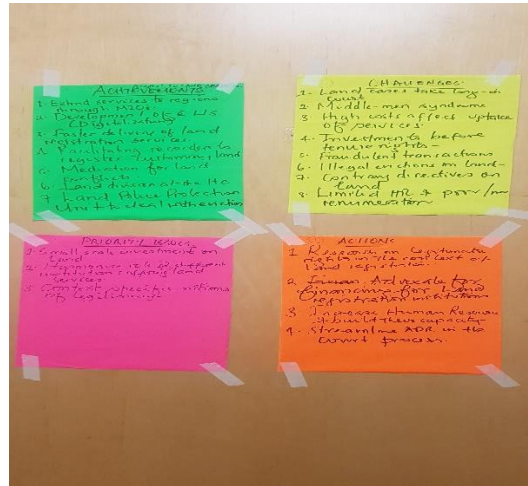 ACHIEVEMENTS
1. Extend services to regions
through MZOs.
2. Development of
(Digitalization)
3. Faster delivery of land
registration services
4. Facilitating recorders to
register customary land
5. Mediation for land
conflicts
6. Land division at the HC
7. Land Police Protection
Unit to deal with evictions
CHALLENGES.
1. Land cases take long in
court
2. Middle-men syndrome
3. High costs affect uptake
of services
4. Investments before
tenure rights.
5. Fraudulent transactions
6. Illegal evictions on land
7. Contrary directives on
land
8. Limited HR & poor / no
renumeration
PRIORITY ISSUES.
Small scale investment on
land
different
institution offering land
services
3. Context specific
of legitimacy
ACTIONS
1. Research on legitimate
rights in the context of
land registration
2. Advocate for
financing for land
registration institutions
3. Increase Human Resource
& build their capacity
4. Streamline ADR in the
court process.